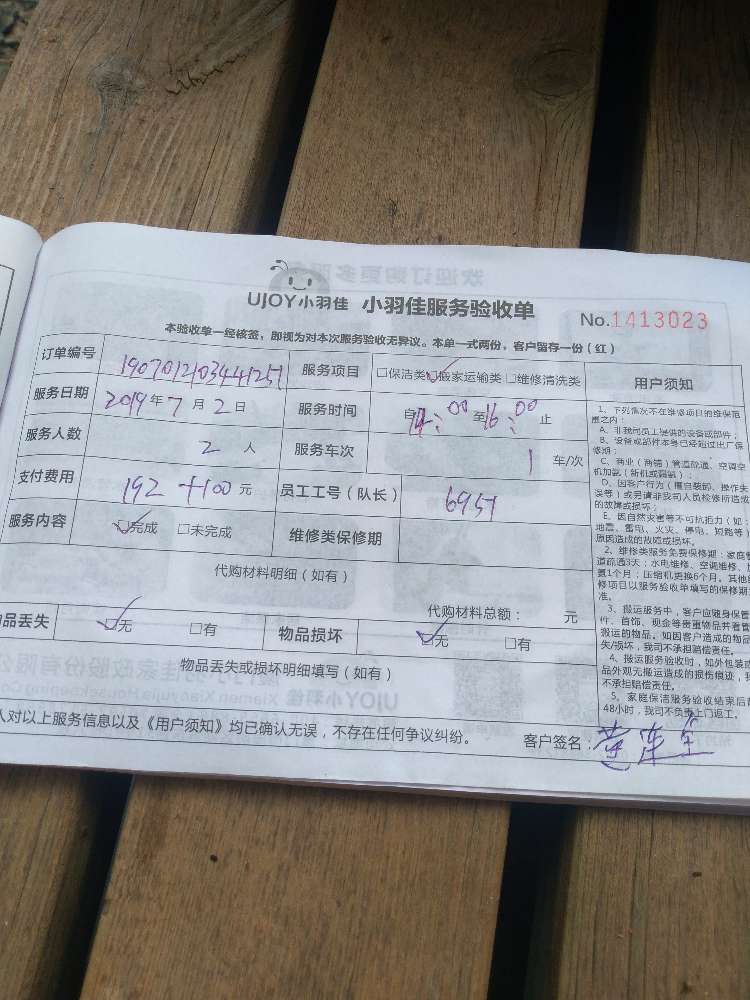 UJOY小羽佳 小羽佳服务验收单
No.1413023
本验收单一经核签，即视为对本次服务验收无异议。本单一式两份，客户留存一份（红）
订单编号 服务项目 □保洁类 ☑搬家运输类 □维修清洗类 用户须知
服务日期 2019年7月2日 服务时间 自14:00至16:00止
服务人数 2人 服务车次 1车/次
支付费用 192+100元 员工工号（队长） 6951
服务内容 ☑完成 □未完成 维修类保修期
代购材料明细（如有）
代购材料总额： 元
品丢失 ☑无 □有 物品损坏 ☑无 □有
物品丢失或损坏明细填写（如有）
人对以上服务信息以及《用户须知》均已确认无误，不存在任何争议纠纷。 客户签名：
1、下列情况不在维修项目的维保范
围之内：
A、非我司员工提供的设备或部件；
B、设备或部件本身已经超过出厂保
修期；
C、商业（商铺）管道疏通、空调空
机加氨（新机或漏氨）
D、因客户行为（擅自装卸、操作失
误等）或另请非我司人员检修所造成
的故障或损坏；
E、因自然灾害等不可抗拒力（如：
地震、雷电、火灾、停电、短路等）
原因造成的故障或损坏。
2、维修类服务免费保修期：家庭管
道疏通3天；水电维修、空调维修、
置1个月；压缩机更换6个月。其他
修项目以服务验收单填写的保修期
准。
3、搬运服务中，客户应随身保管
件、首饰、现金等贵重物品并看管
搬运的物品。如因客户造成的物品
失/损坏，我司不承担赔偿责任。
4、搬运服务验收时，如外包装或
品外观无搬运造成的损伤痕迹，我
不承担赔偿责任。
5、家庭保洁服务验收结束后超
48小时，我司不负责上门返工。